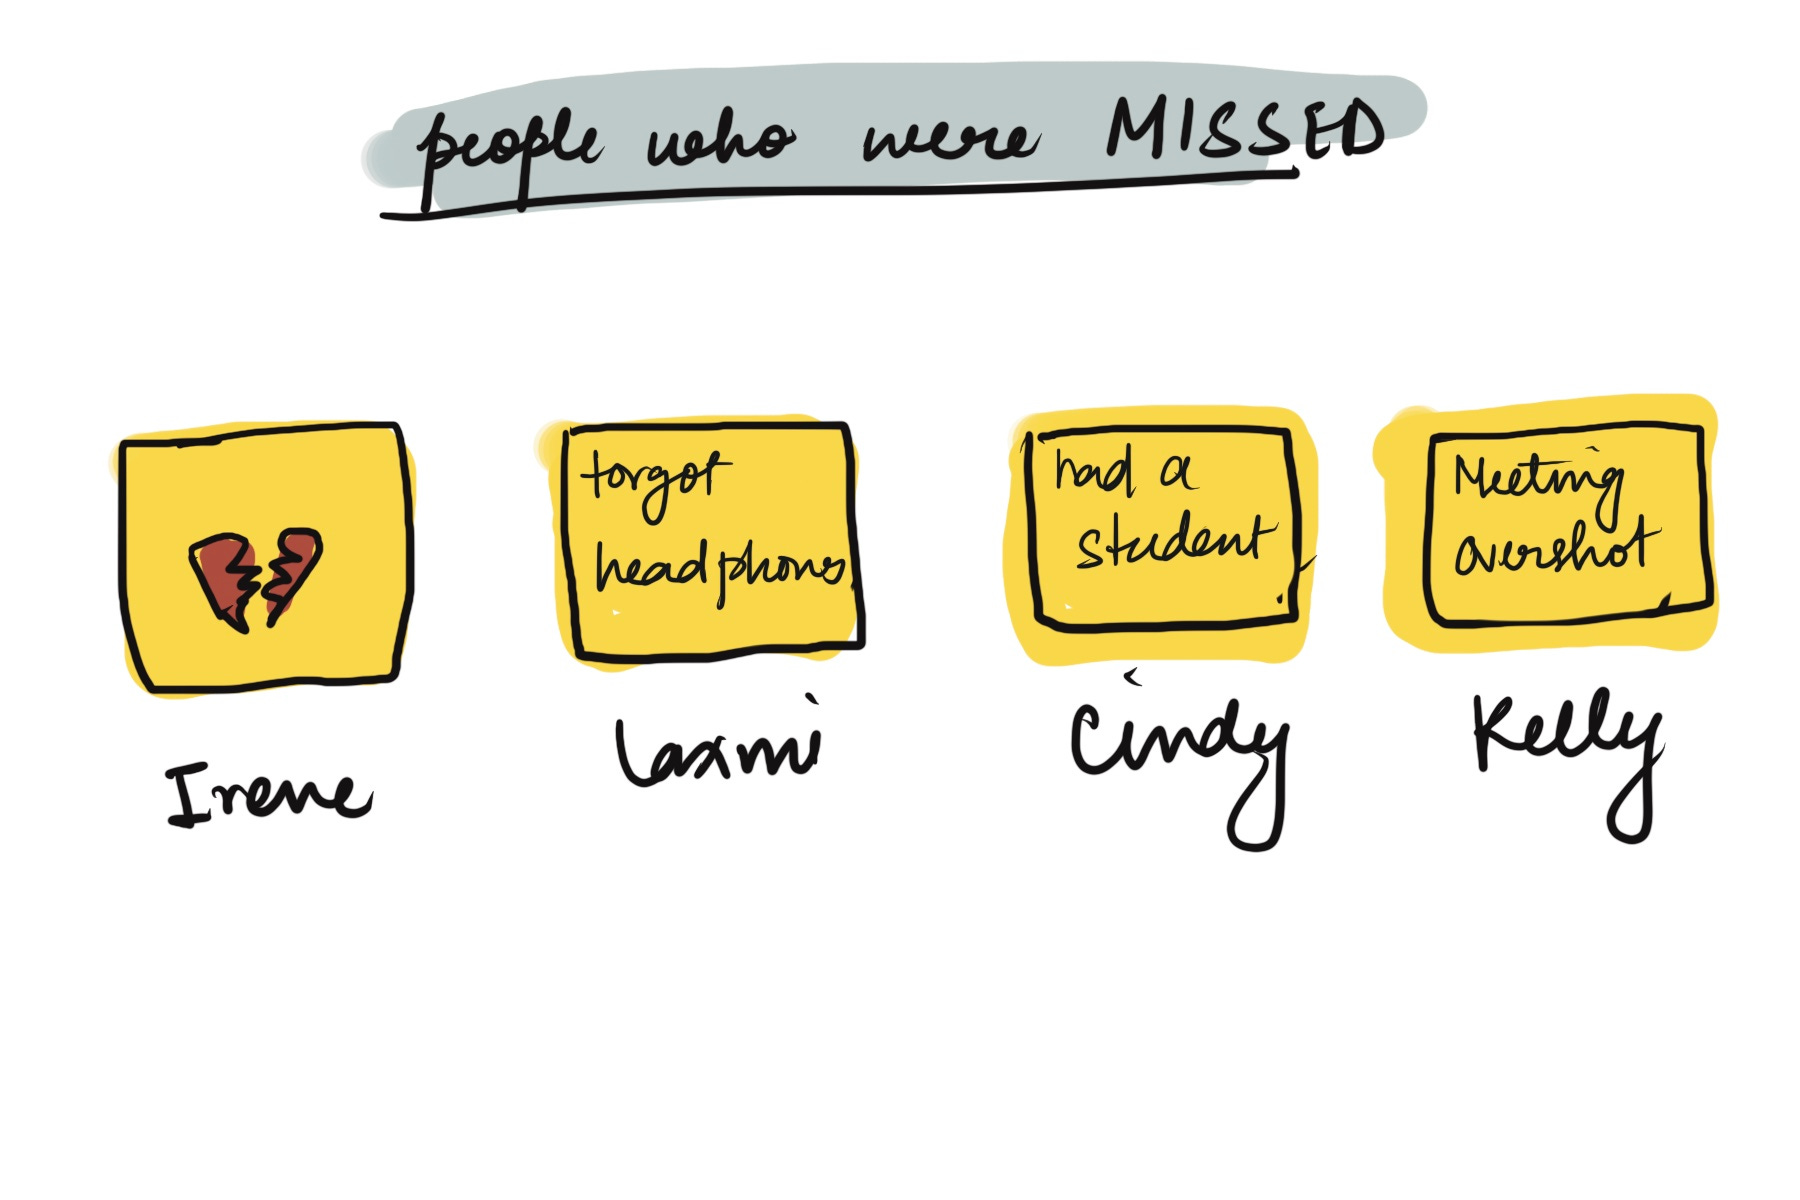 people who were MISSED
forgot
headphones
had a
student
Meeting
overshot
Irene
Laxmi
Cindy
Kelly